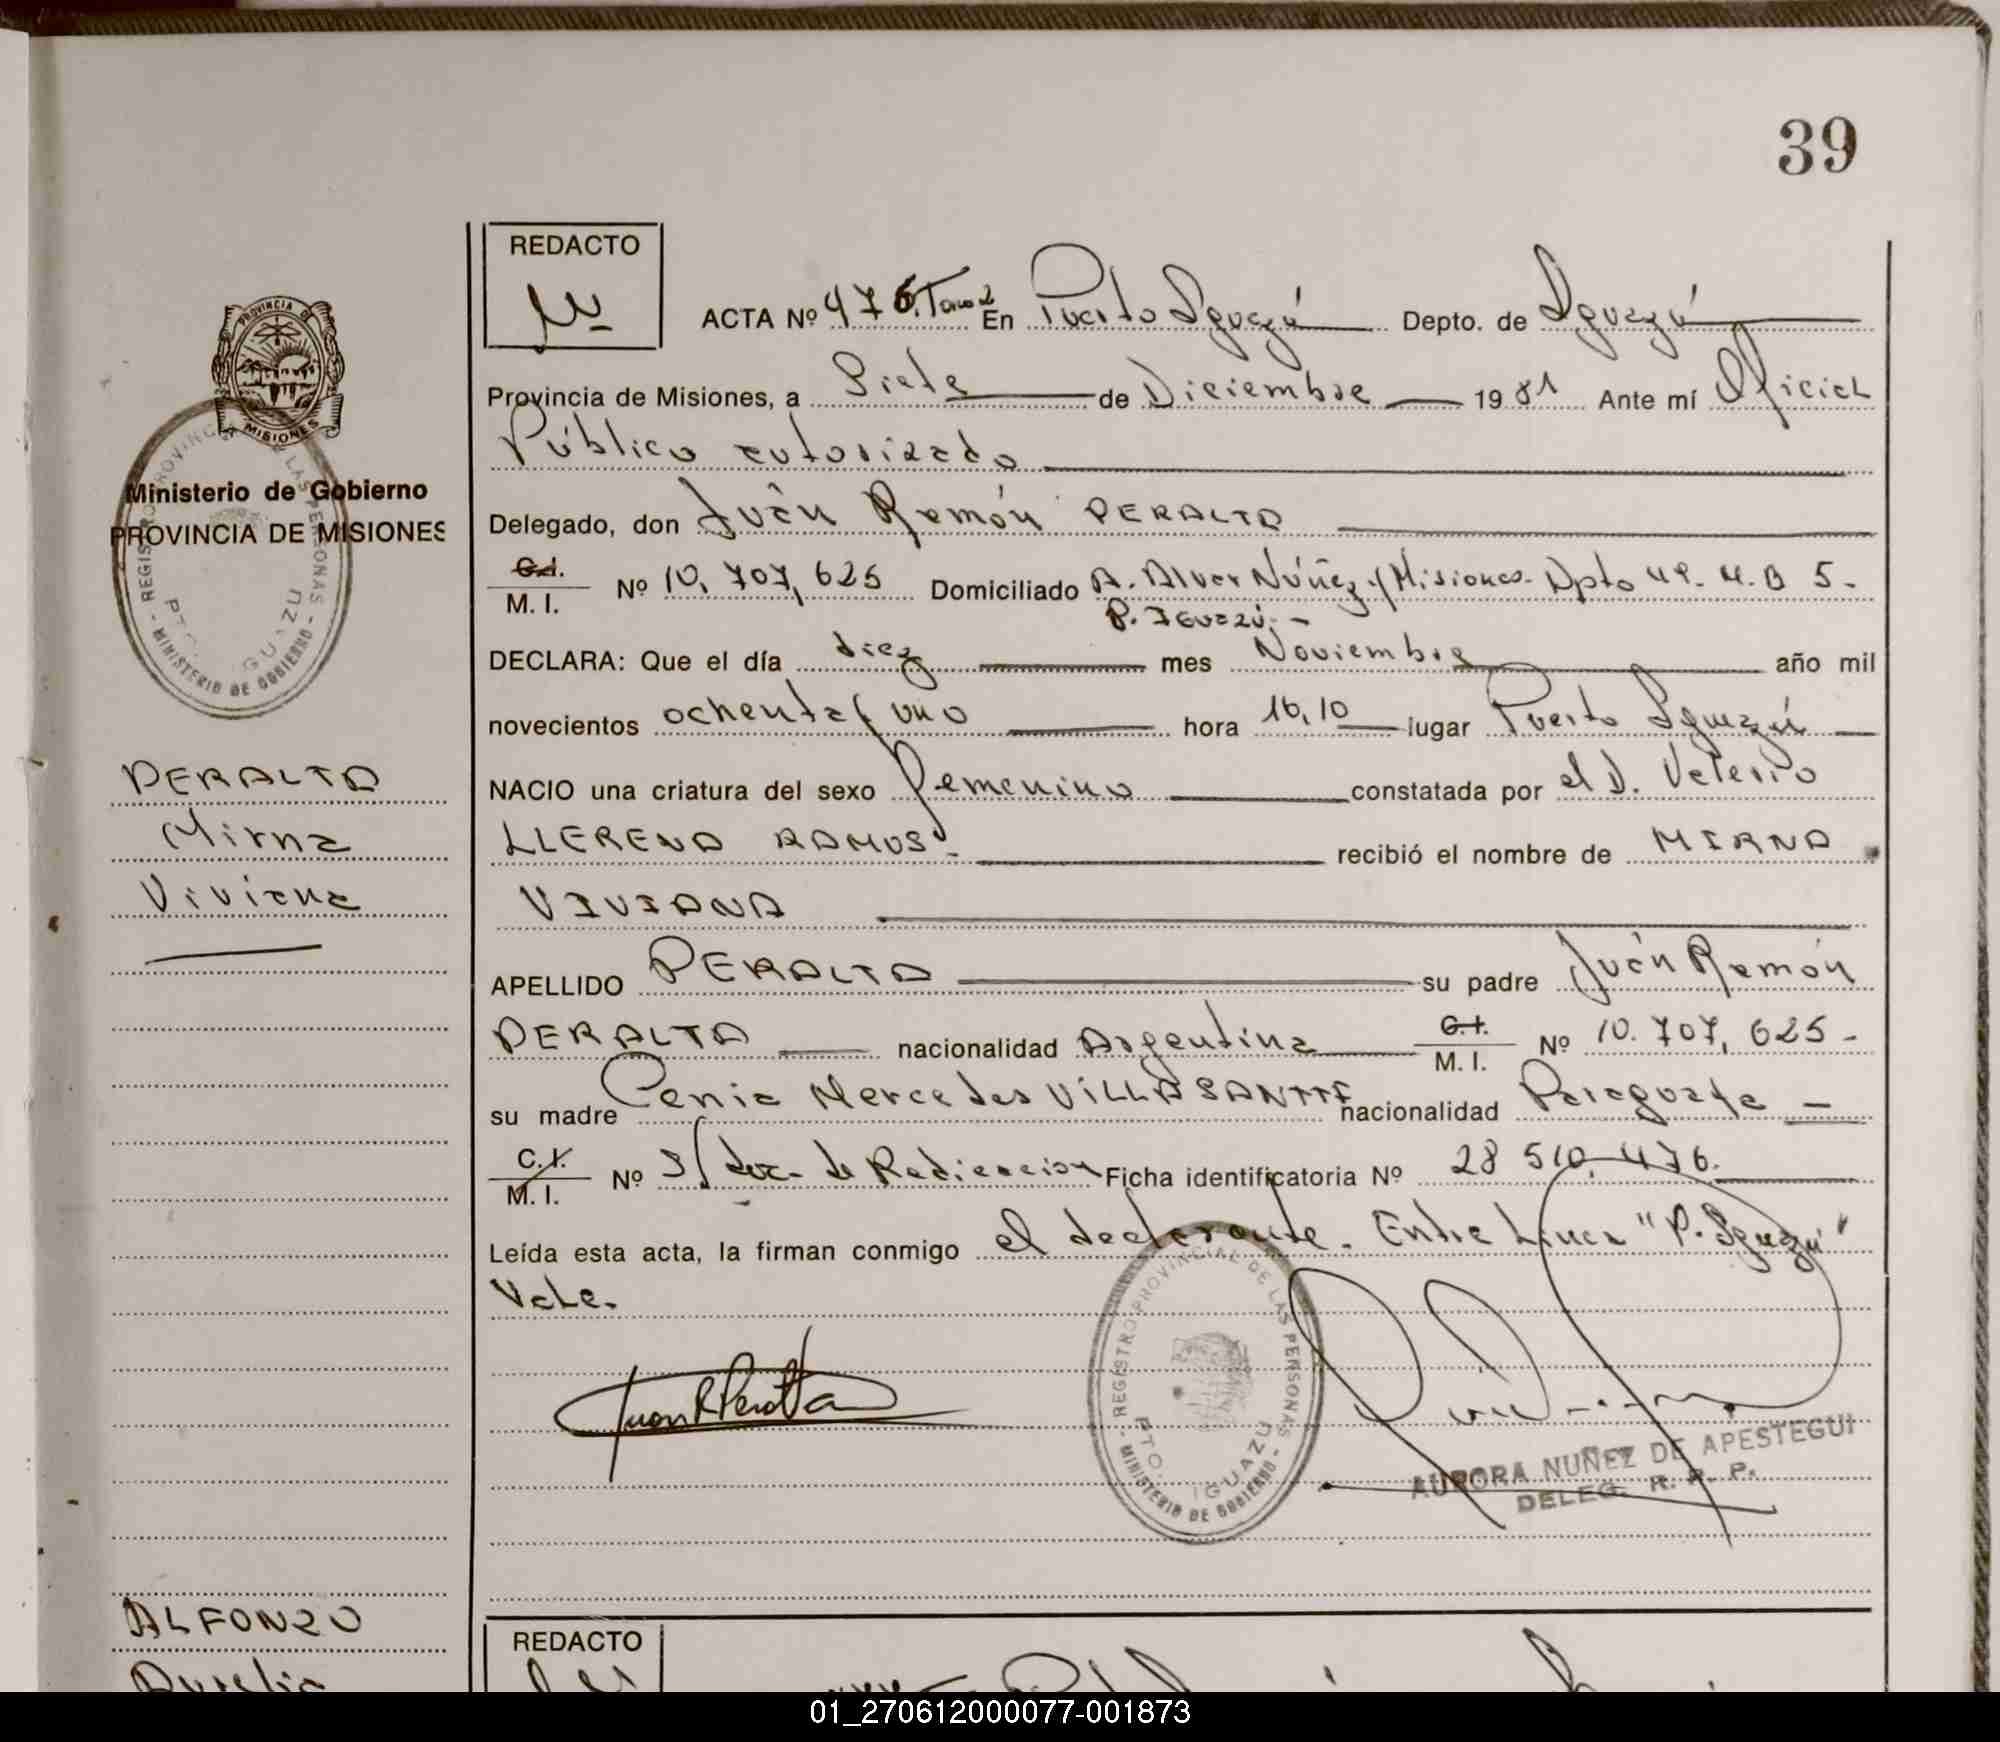 39
REDACTO
ACTA Nº 476. Tomo 2 En Puerto Iguazú Depto. de Iguazú
PROVINCIA DE MISIONES
Provincia de Misiones, a Siete de Diciembre 1981 Ante mí Oficial
Público autorizado
REGISTRO PROVINCIAL DE LAS PERSONAS - MINISTERIO DE GOBIERNO - PTO. IGUAZU
Ministerio de Gobierno
PROVINCIA DE MISIONES
Delegado, don Juan Ramón PERALTA
C.I. M. I. Nº 10,707,625 Domiciliado A. Alvar Núñez y Misiones. Dpto 49. M.B 5.
P. IGUAZÚ.
DECLARA: Que el día diez mes Noviembre año mil
novecientos ochenta y uno hora 16,10 lugar Puerto Iguazú
NACIO una criatura del sexo Femenino constatada por el D. Valerio
PERALTA
Mirna
Viviana
LLERENA RAMOS. recibió el nombre de MIRNA
VIVIANA
APELLIDO PERALTA su padre Juan Ramón
PERALTA nacionalidad Argentina C.I. M. I. Nº 10.707,625
su madre Cenia Mercedes VILLASANTTE nacionalidad Paraguaya
C.I. M. I. Nº S/ doc. de Radicacion Ficha identificatoria Nº 28 510,476.
Leída esta acta, la firman conmigo el declarante. Entre Linea "P. Iguazú"
Vale.
Juan R Peralta
REGISTRO PROVINCIAL DE LAS PERSONAS - MINISTERIO DE GOBIERNO - PTO. IGUAZU
AURORA NUÑEZ DE APESTEGUI
DELEG. R. P. P.
ALFONZO
Aurelia
REDACTO
01_270612000077-001873